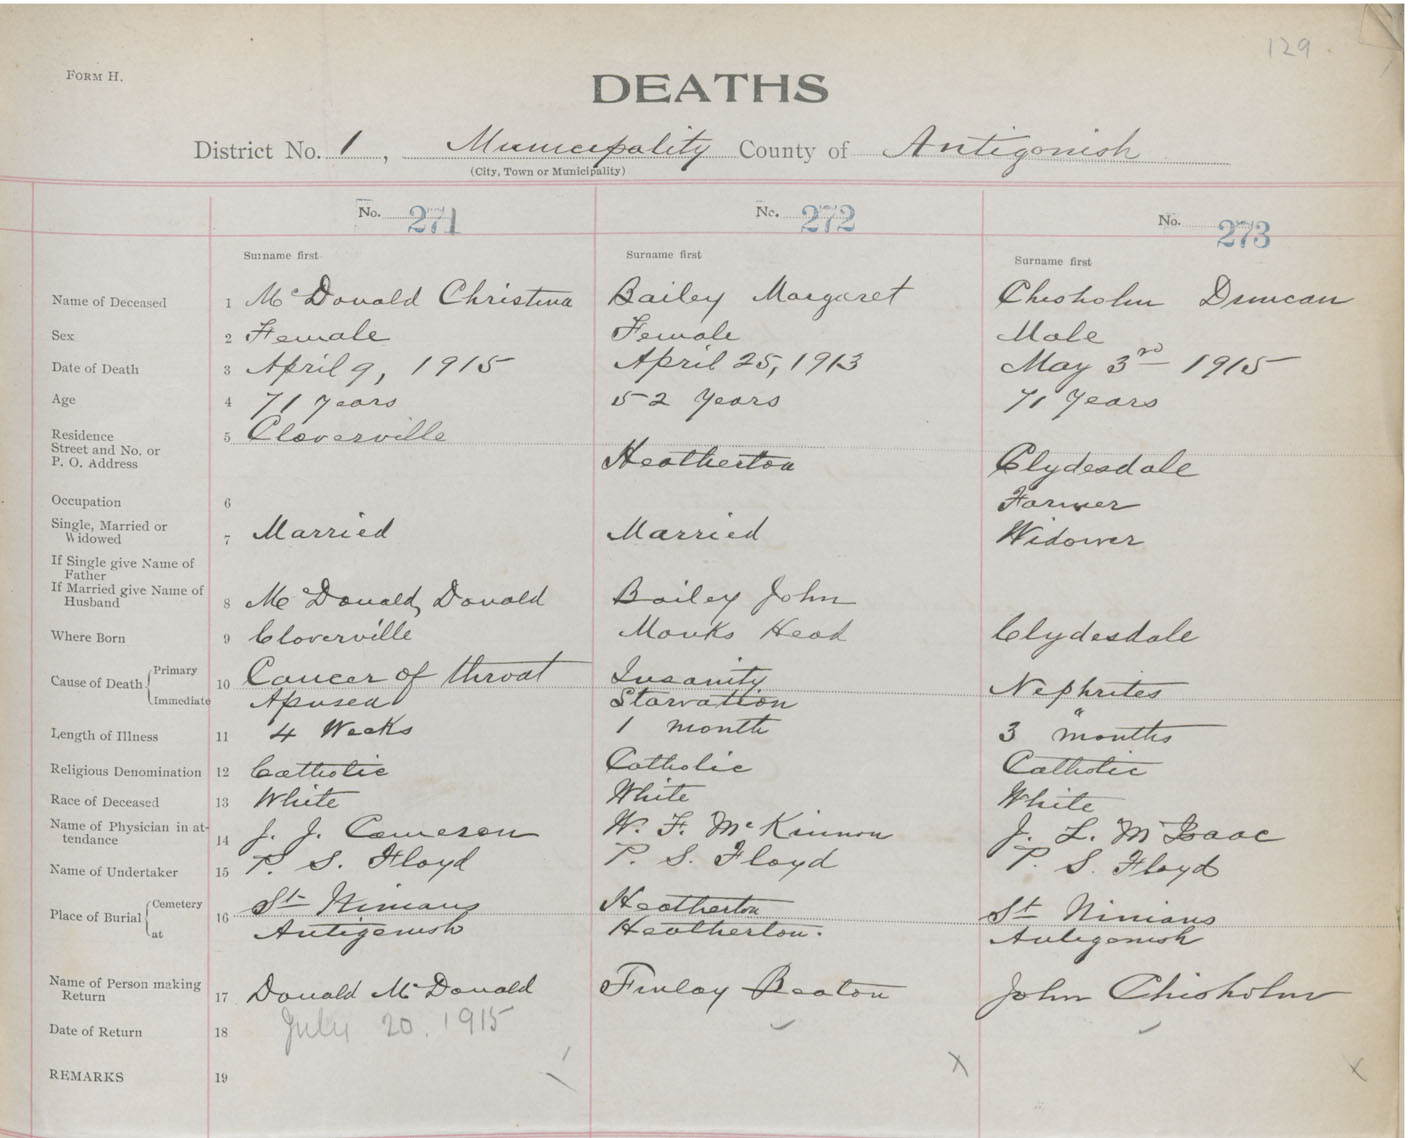 129
FORM H.
DEATHS
District No. 1, Municipality County of Antigonish
(City, Town or Municipality)
No. 271 No. 272 No. 273
Surname first Surname first Surname first
Name of Deceased 1 McDonald Christina Bailey Margaret Chisholm Duncan
Sex 2 Female Female Male
Date of Death 3 April 9, 1915 April 25, 1913 May 3rd 1915
Age 4 71 Years 52 Years 71 Years
Residence 5 Cloverville
Street and No. or
P. O. Address Heatherton Clydesdale
Occupation 6 Farmer
Single, Married or
Widowed 7 Married Married Widower
If Single give Name of
Father
If Married give Name of
Husband 8 McDonald, Donald Bailey John
Where Born 9 Cloverville Monks Head Clydesdale
Cause of Death Primary 10 Cancer of throat Insanity Nephrites
Immediate Starvation "
Length of Illness 11 4 Weeks 1 month 3 months
Religious Denomination 12 Catholic Catholic Catholic
Race of Deceased 13 White White White
Name of Physician in at-
tendance 14 J. J. Cameron W. F. McKinnon J. L. McIsaac
Name of Undertaker 15 P. S. Floyd P. S. Floyd P. S. Floyd
Place of Burial Cemetery 16 St Ninians Heatherton St Ninians
at Antigonish Heatherton. Antigonish
Name of Person making
Return 17 Donald McDonald Finlay Beaton John Chisholm
Date of Return 18 July 20, 1915
REMARKS 19